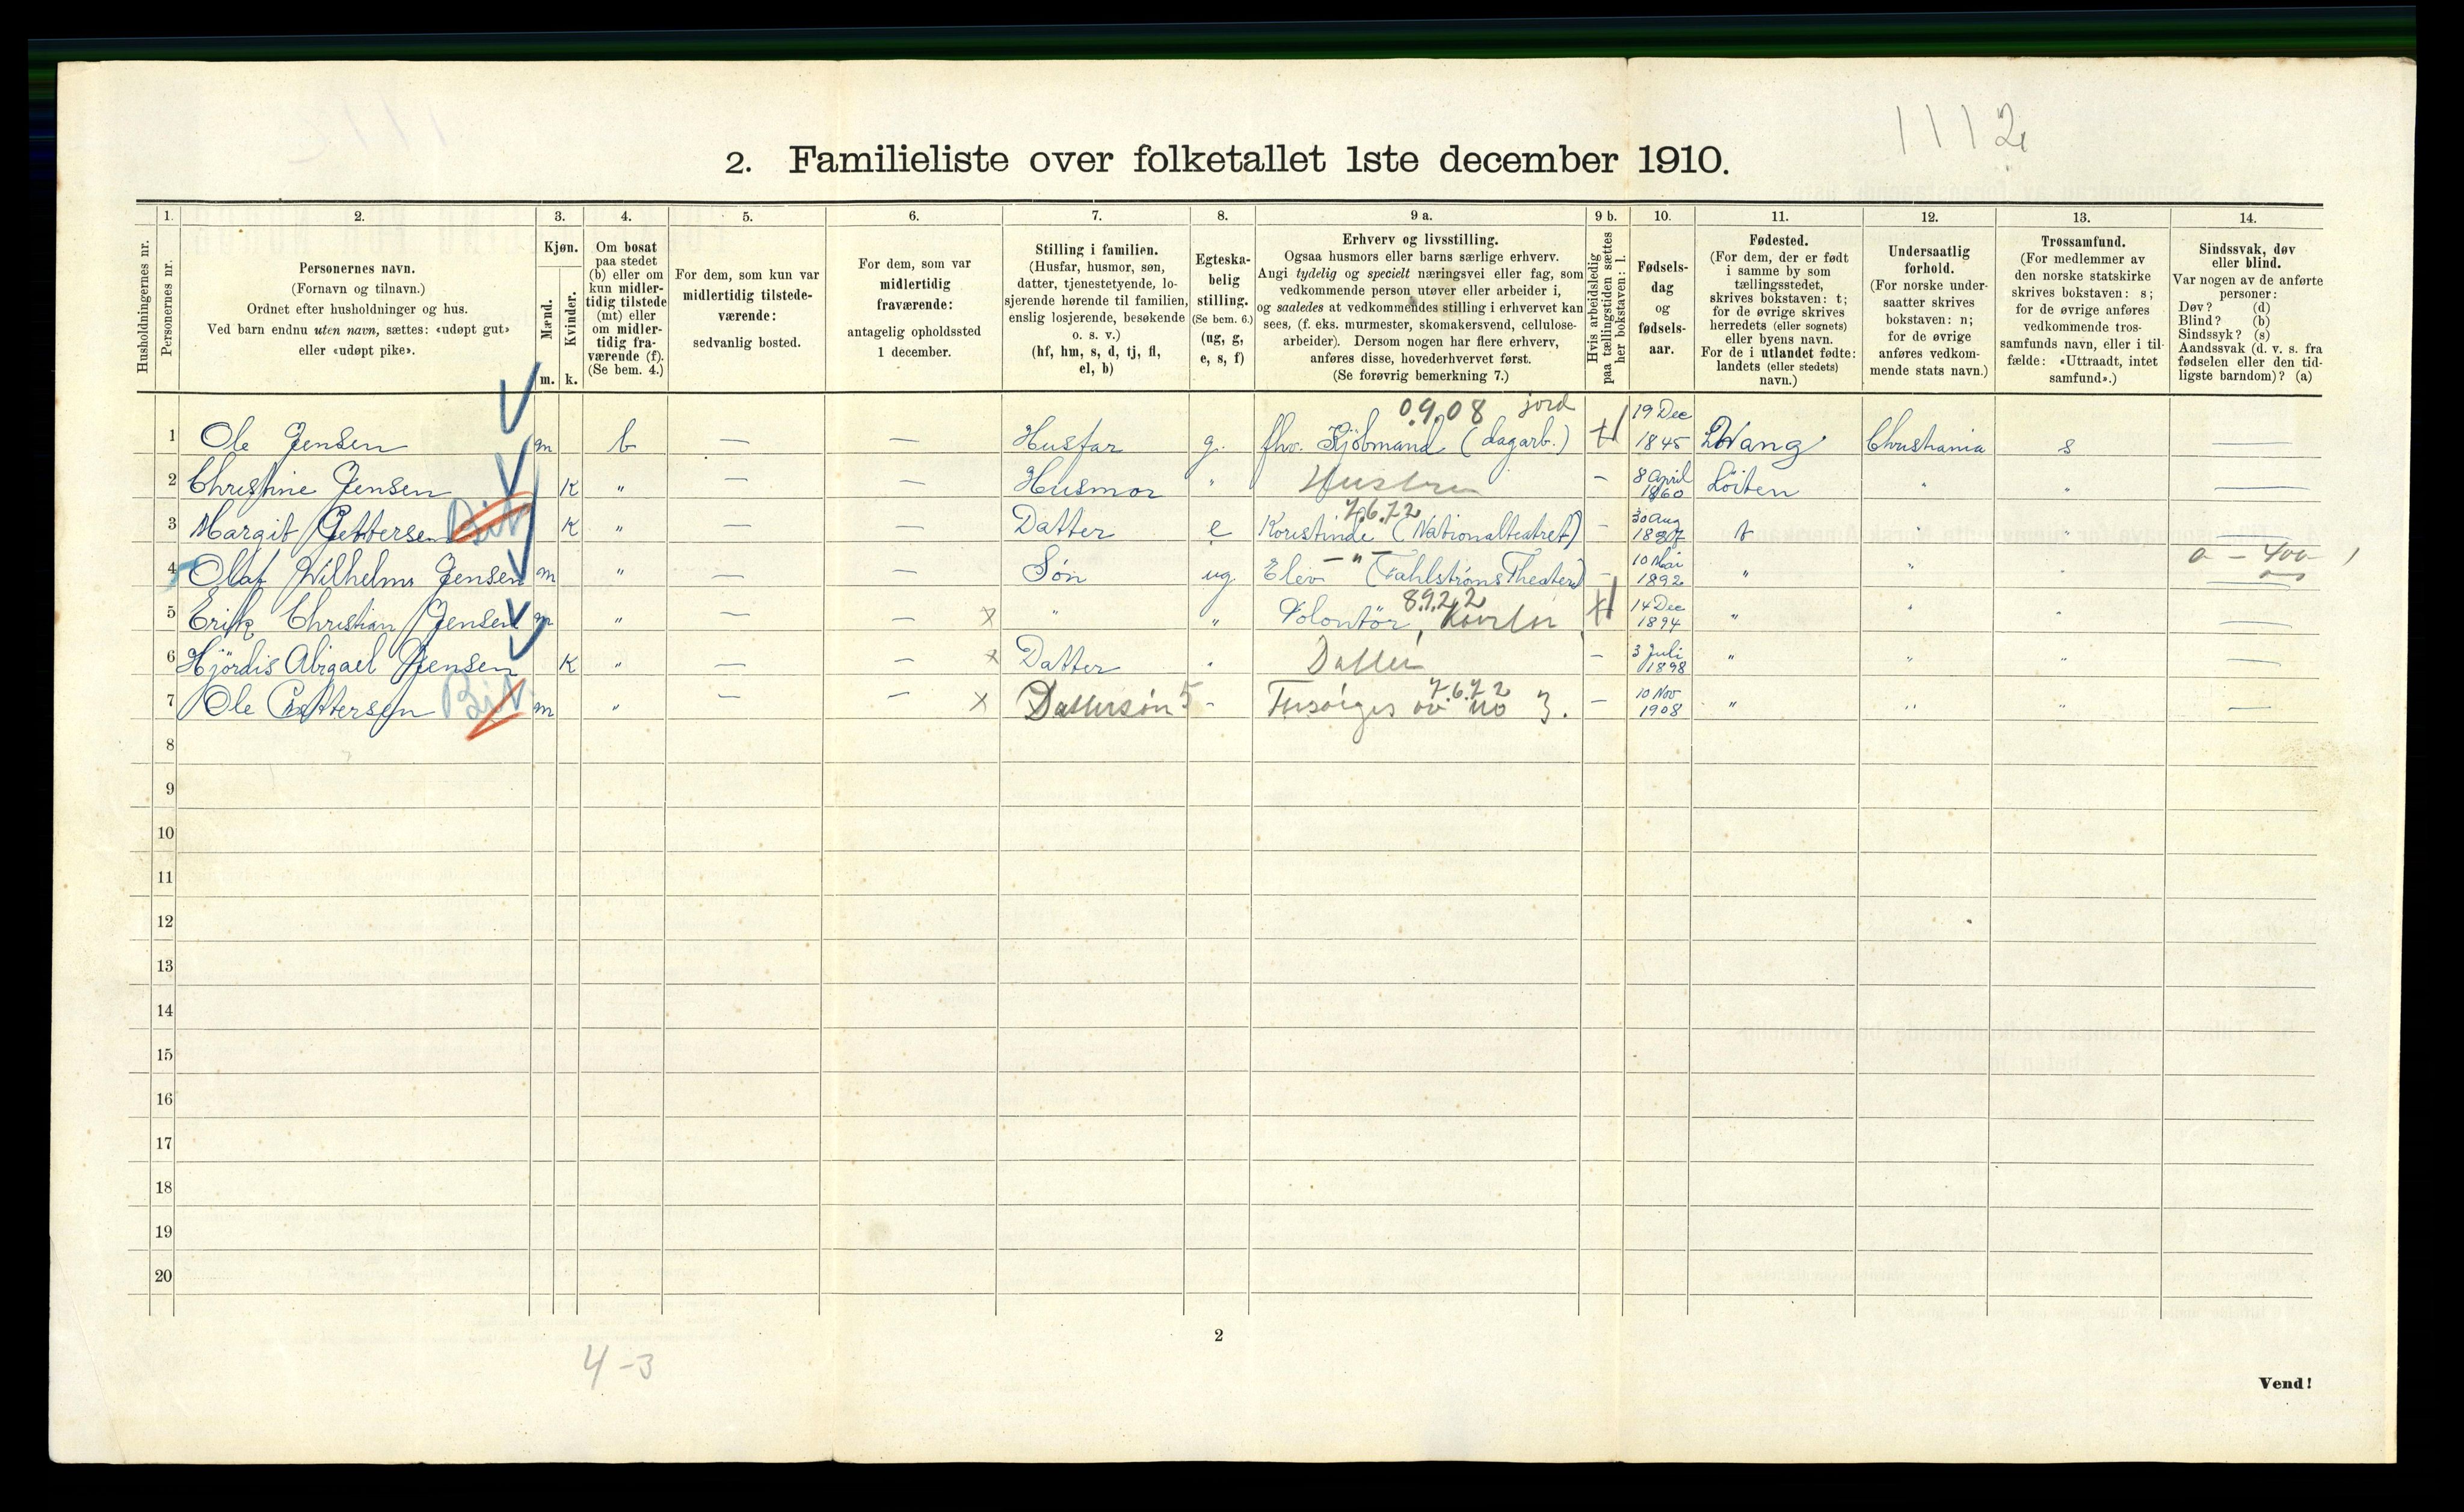 1112
2. Familieliste over folketallet 1ste december 1910.
Husholdningernes nr.
1. Personernes nr.
2. Personernes navn.
(Fornavn og tilnavn.)
Ordnet efter husholdninger og hus.
Ved barn endnu uten navn, sættes: «udøpt gut»
eller «udøpt pike».
3. Kjøn.
Mænd. m.
Kvinder. k.
4. Om bosat
paa stedet
(b) eller om
kun midler-
tidig tilstede
(mt) eller
om midler-
tidig fra-
værende (f).
(Se bem. 4.)
5. For dem, som kun var
midlertidig tilstede-
værende:
sedvanlig bosted.
6. For dem, som var
midlertidig
fraværende:
antagelig opholdssted
1 december.
7. Stilling i familien.
(Husfar, husmor, søn,
datter, tjenestetyende, lo-
sjerende hørende til familien,
enslig losjerende, besøkende
o. s. v.)
(hf, hm, s, d, tj, fl,
el, b)
8. Egteska-
belig
stilling.
(Se bem. 6.)
(ug, g,
e, s, f)
9 a. Erhverv og livsstilling.
Ogsaa husmors eller barns særlige erhverv.
Angi tydelig og specielt næringsvei eller fag, som
vedkommende person utøver eller arbeider i,
og saaledes at vedkommendes stilling i erhvervet kan
sees, (f. eks. murmester, skomakersvend, cellulose-
arbeider). Dersom nogen har flere erhverv,
anføres disse, hovederhvervet først.
(Se forøvrig bemerkning 7.)
9 b. Hvis arbeidsledig
paa tællingstiden sættes
her bokstaven: l.
10. Fødsels-
dag
og
fødsels-
aar.
11. Fødested.
(For dem, der er født
i samme by som
tællingsstedet,
skrives bokstaven: t;
for de øvrige skrives
herredets (eller sognets)
eller byens navn.
For de i utlandet fødte:
landets (eller stedets)
navn.)
12. Undersaatlig
forhold.
(For norske under-
saatter skrives
bokstaven: n;
for de øvrige
anføres vedkom-
mende stats navn.)
13. Trossamfund.
(For medlemmer av
den norske statskirke
skrives bokstaven: s;
for de øvrige anføres
vedkommende tros-
samfunds navn, eller i til-
fælde: «Uttraadt, intet
samfund».)
14. Sindssvak, døv
eller blind.
Var nogen av de anførte
personer:
Døv? (d)
Blind? (b)
Sindssyk? (s)
Aandssvak (d. v. s. fra
fødselen eller den tid-
ligste barndom)? (a)
0.9.08 jord 19 Dec
1 Ole Jensen m b — — Husfar g. fhv. Kjøbmand (dagarb.) 1845 Vang Christiania s —
2 Christine Jensen K " — — Husmor " Hustru — 8 April 1860 Löiten " " —
7.6.72
3 Margit Pettersen K " — — Datter e Koristinde (Nationalteatret) — 30 Aug t " "
4 Olaf Wilhelm Jensen m " — — Søn ug Elev —"— (Fahlstrøms Theater) — 10 Mai 1892 " " " —
8.9.22
5 Erik Christian Jensen m " — — x " " Volontör, 14 Dec 1894 " " " —
6 Hjördis Abigael Jensen K " — — x Datter " Datter — 3 Juli 1898 " " " —
7.6.72
7 Ole Pettersen m " — — x Dattersøn 5 - Forsørges av no 3. — 10 Nov 1908 " " " —
8
9
10
11
12
13
14
15
16
17
18
19
20
2
4-3
Vend!